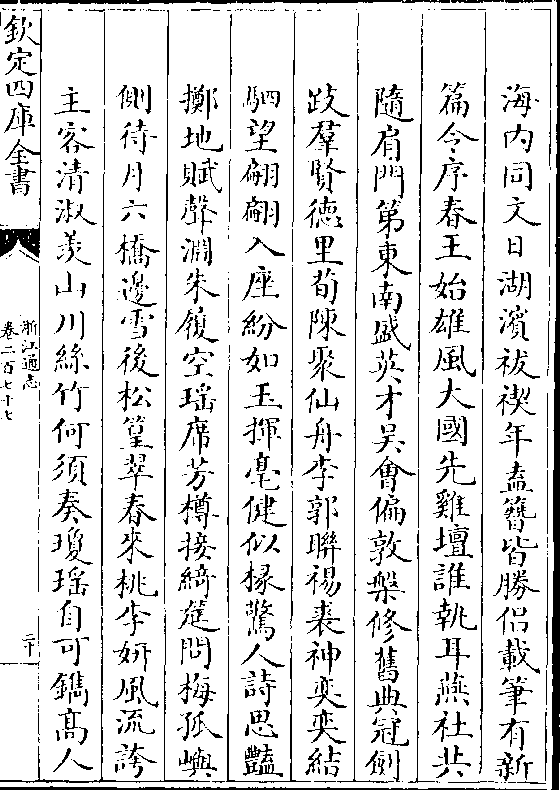 海内同文日湖濱祓禊年盍簪皆勝侣載筆有新
篇令序春王始雄風大國先雞壇誰執耳燕社共
隨肩門第東南盛英才吳會偏敦槃修舊典冠劍
跂羣賢德里荀陳聚仙舟李郭聯裼裘神奕奕結
駟望翩翩入座紛如玉揮毫健似椽驚人詩思豔
擲地賦聲淵朱履空瑶席芳樽接綺筵問梅孤嶼
側待月六橋邊雪後松篁翠春來桃李妍風流誇
主客清淑羨山川絲竹何須奏瓊瑶自可鐫髙人
欽定四庫全書
浙江通志
卷二百七十七
二十